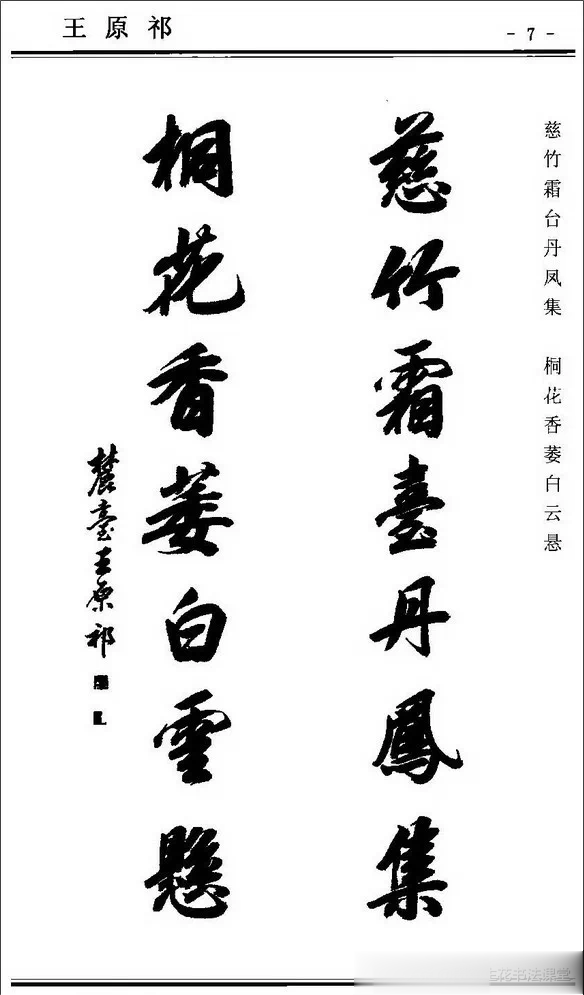 王原祁
- 7 -
慈竹霜台丹凤集 桐花香萎白云悬
慈竹霜臺丹鳳集
桐花香萎白雲懸
麓臺王原祁
花书法课堂